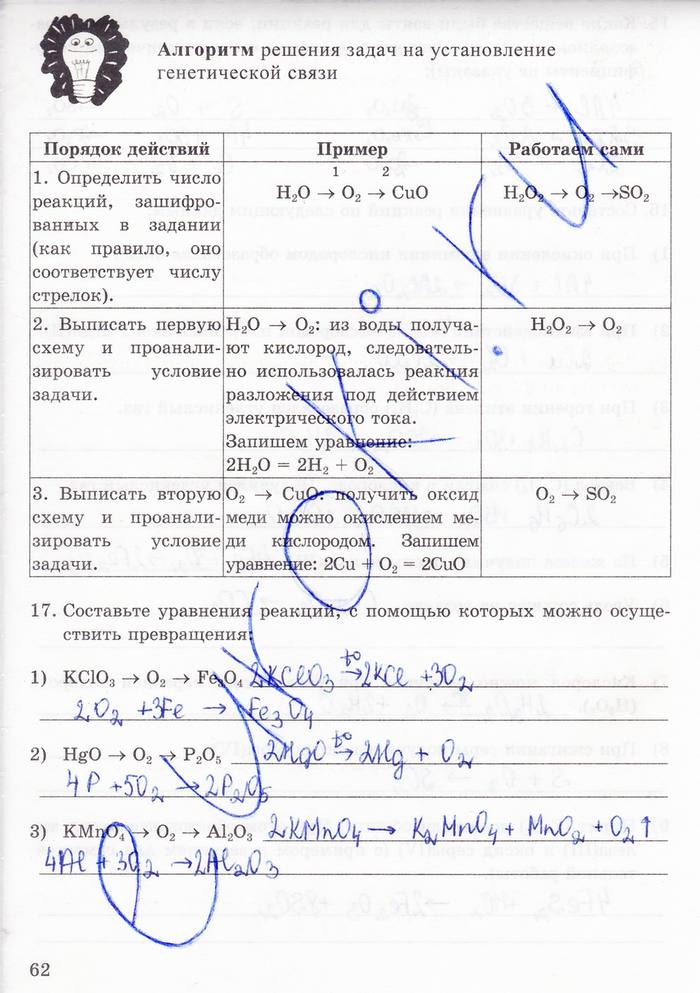 Алгоритм решения задач на установление
генетической связи
Порядок действий
Пример
Работаем сами
1. Определить число
реакций, зашифро-
ванных в задании
(как правило, оно
соответствует числу
стрелок).
1 2
H₂O → O₂ → CuO
H₂O₂ → O₂ →SO₂
2. Выписать первую
схему и проанали-
зировать условие
задачи.
H₂O → O₂: из воды получа-
ют кислород, следователь-
но использовалась реакция
разложения под действием
электрического тока.
Запишем уравнение:
2H₂O = 2H₂ + O₂
H₂O₂ → O₂
3. Выписать вторую
схему и проанали-
зировать условие
задачи.
O₂ → CuO: получить оксид
меди можно окислением ме-
ди кислородом. Запишем
уравнение: 2Cu + O₂ = 2CuO
O₂ → SO₂
17. Составьте уравнения реакций, с помощью которых можно осуще-
ствить превращения:
1) KClO₃ → O₂ → Fe₃O₄ 2KClO₃ t° → 2KCl + 3O₂
2O₂ + 3Fe → Fe₃O₄
2) HgO → O₂ → P₂O₅ 2HgO t° → 2Hg + O₂
4P + 5O₂ → 2P₂O₅
3) KMnO₄ → O₂ → Al₂O₃ 2KMnO₄ → K₂MnO₄ + MnO₂ + O₂↑
4Al + 3O₂ → 2Al₂O₃
62